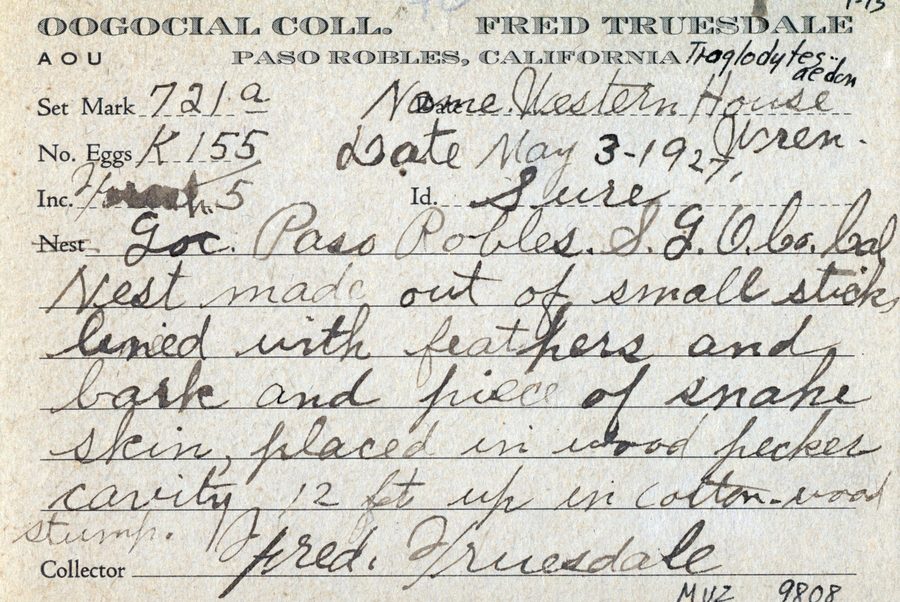 OOGOCIAL COLL. FRED TRUESDALE
AOU PASO ROBLES, CALIFORNIA Troglodytes
aedon
Set Mark 721 a Name Western House
No. Eggs K 155 Date May 3-1927, Wren.
Inc. 5 Id. Sure
Nest Loc. Paso Robles. S. L. O. Co. Cal
Nest made out of small sticks
lined with feathers and
bark and piece of snake
skin, placed in wood pecker
cavity 12 ft up in cotton-wood
stump.
Collector Fred. Truesdale
MVZ 9808